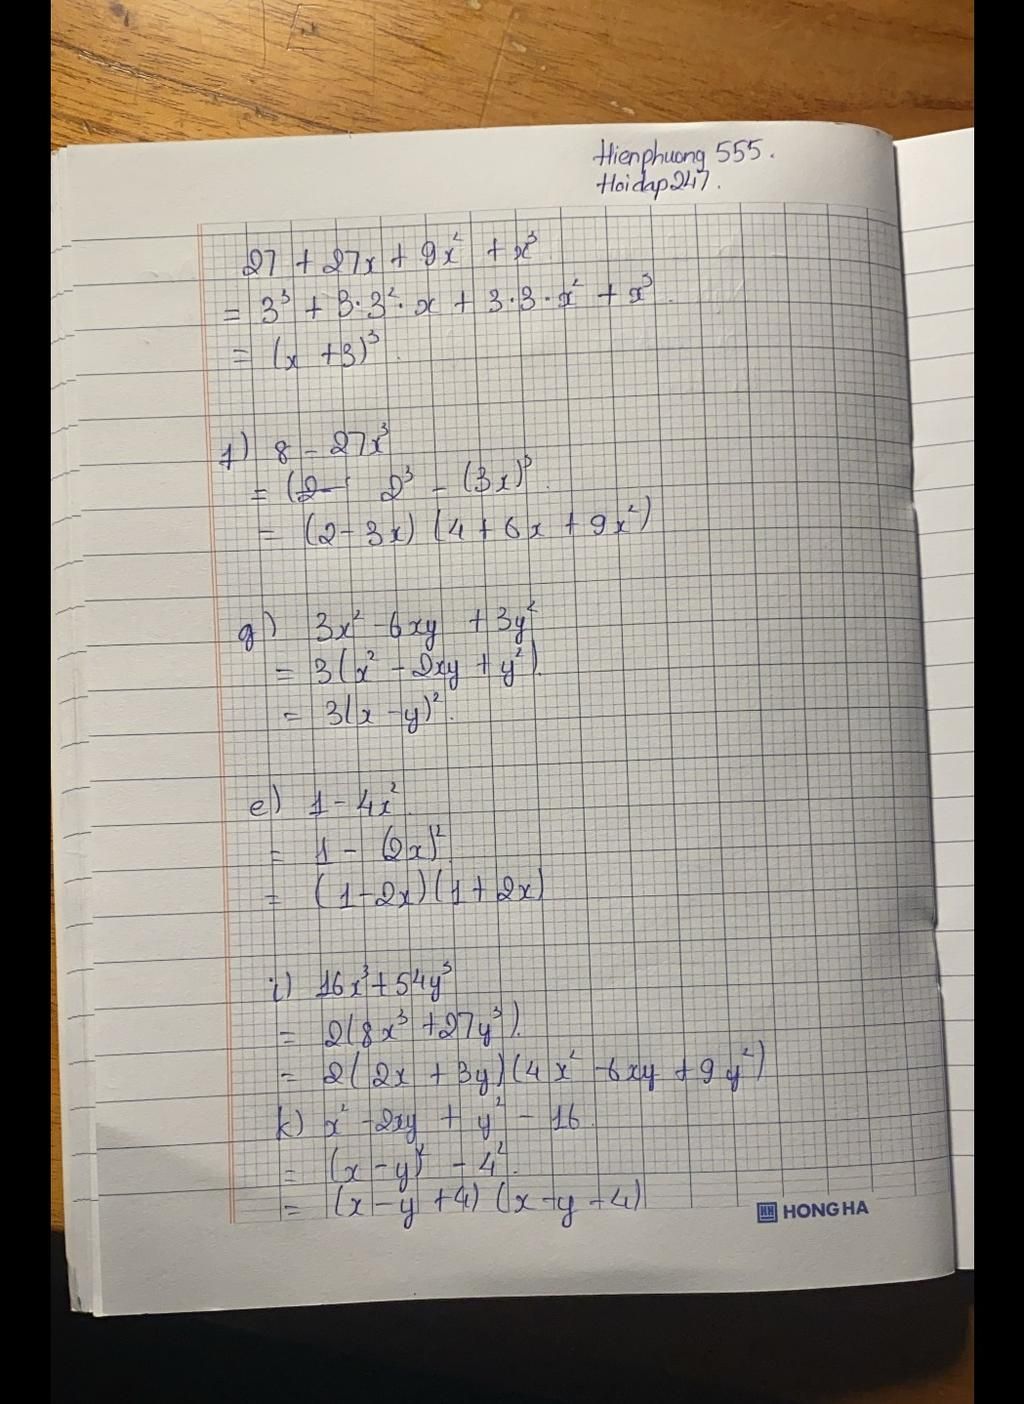 Hienphuong 555.
Hoidap247.
27 + 27x + 9x² + x³
= 3³ + 3·3²·x + 3·3·x² + x³.
= (x + 3)³.
f) 8 - 27x³
= (2 - 2³ - (3x)³.
= (2 - 3x) (4 + 6x + 9x²)
g) 3x² - 6xy + 3y²
= 3(x² - 2xy + y²).
= 3(x - y)².
e) 1 - 4x².
= 1 - (2x)²
= (1 - 2x)(1 + 2x)
i) 16x³ + 54y³
= 2(8x³ + 27y³).
= 2(2x + 3y)(4x² - 6xy + 9y²)
k) x² - 2xy + y² - 16.
= (x - y)² - 4².
= (x - y + 4) (x - y - 4)
HH HONG HA